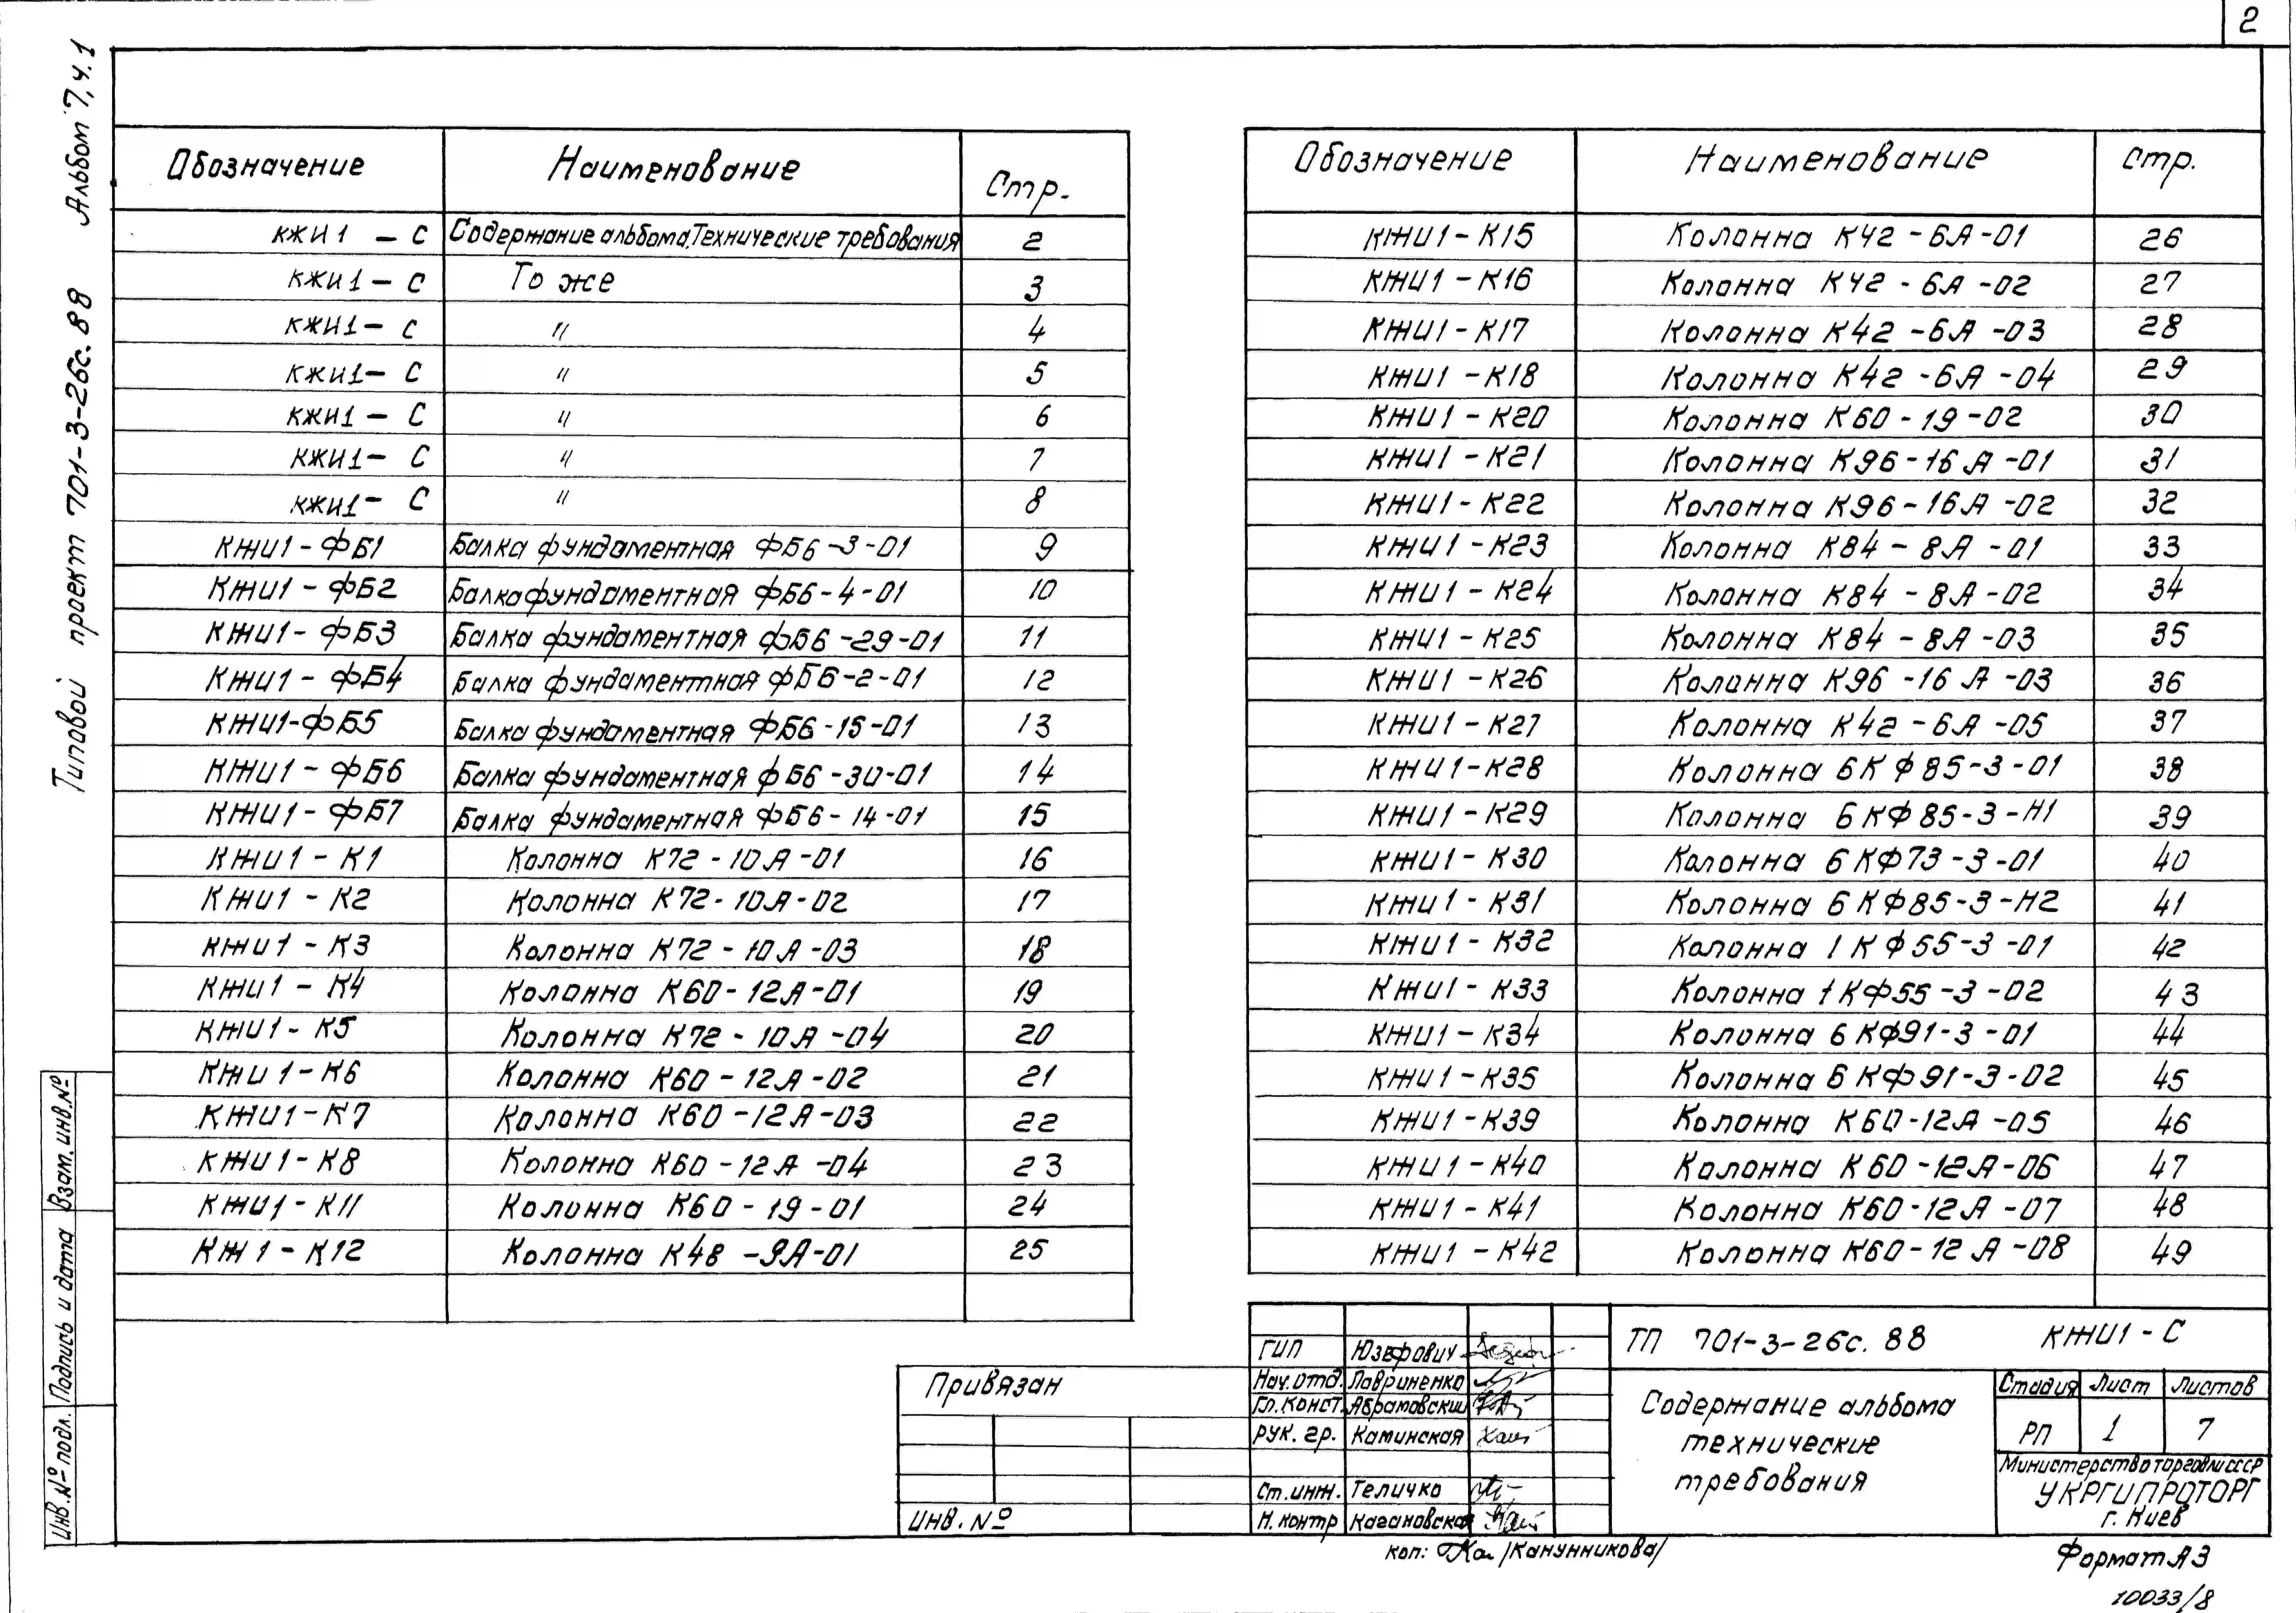 2
Типовой проект 701-3-26с.88 Альбом 7, ч.1
Обозначение Наименование Стр.
КЖИ1 - С Содержание альбома.Технические требования 2
КЖИ1 - С То же 3
КЖИ1 - С " 4
КЖИ1 - С " 5
КЖИ1 - С " 6
КЖИ1 - С " 7
КЖИ1 - С " 8
КЖИ1 - ФБ1 Балка фундаментная ФБ6-3-01 9
КЖИ1 - ФБ2 Балка фундаментная ФБ6-4-01 10
КЖИ1 - ФБ3 Балка фундаментная ФБ6-29-01 11
КЖИ1 - ФБ4 Балка фундаментная ФБ6-2-01 12
КЖИ1-ФБ5 Балка фундаментная ФБ6-15-01 13
КЖИ1 - ФБ6 Балка фундаментная ФБ6-30-01 14
КЖИ1 - ФБ7 Балка фундаментная ФБ6-14-01 15
КЖИ1 - К1 Колонна К72-10А-01 16
КЖИ1 - К2 Колонна К72-10А-02 17
КЖИ1 - К3 Колонна К72-10А-03 18
КЖИ1 - К4 Колонна К60-12А-01 19
КЖИ1 - К5 Колонна К72-10А-04 20
КЖИ1 - К6 Колонна К60-12А-02 21
КЖИ1 - К7 Колонна К60-12А-03 22
КЖИ1 - К8 Колонна К60-12А-04 23
КЖИ1 - К11 Колонна К60-19-01 24
КЖ1 - К12 Колонна К48-9А-01 25
Обозначение Наименование Стр.
КЖИ1 - К15 Колонна К42-6А-01 26
КЖИ1 - К16 Колонна К42-6А-02 27
КЖИ1 - К17 Колонна К42-6А-03 28
КЖИ1 - К18 Колонна К42-6А-04 29
КЖИ1 - К20 Колонна К60-19-02 30
КЖИ1 - К21 Колонна К96-16А-01 31
КЖИ1 - К22 Колонна К96-16А-02 32
КЖИ1 - К23 Колонна К84-8А-01 33
КЖИ1 - К24 Колонна К84-8А-02 34
КЖИ1 - К25 Колонна К84-8А-03 35
КЖИ1 - К26 Колонна К96-16А-03 36
КЖИ1 - К27 Колонна К42-6А-05 37
КЖИ1 - К28 Колонна 6КФ85-3-01 38
КЖИ1 - К29 Колонна 6КФ85-3-Н1 39
КЖИ1 - К30 Колонна 6КФ73-3-01 40
КЖИ1 - К31 Колонна 6КФ85-3-Н2 41
КЖИ1 - К32 Колонна 1КФ55-3-01 42
КЖИ1 - К33 Колонна 1КФ55-3-02 43
КЖИ1 - К34 Колонна 6КФ91-3-01 44
КЖИ1 - К35 Колонна 6КФ91-3-02 45
КЖИ1 - К39 Колонна К60-12А-05 46
КЖИ1 - К40 Колонна К60-12А-06 47
КЖИ1 - К41 Колонна К60-12А-07 48
КЖИ1 - К42 Колонна К60-12А-08 49
Инв.№ подл. Подпись и дата Взам.инв.№
Привязан
Инв. №
ГИП Юзефович
Нач.отд. Лавриненко
Гл.конст. Абрамовский
Рук. гр. Каминская
Ст.инж. Теличко
Н.контр Кагановская
ТП 701-3-26с.88 КЖИ1-С
Содержание альбома
технические
требования
Стадия Лист Листов
РП 1 7
Министерство торговли СССР
УКРГИПРОТОРГ
г. Киев
Коп: /Канунникова/
Формат А3
10033/8